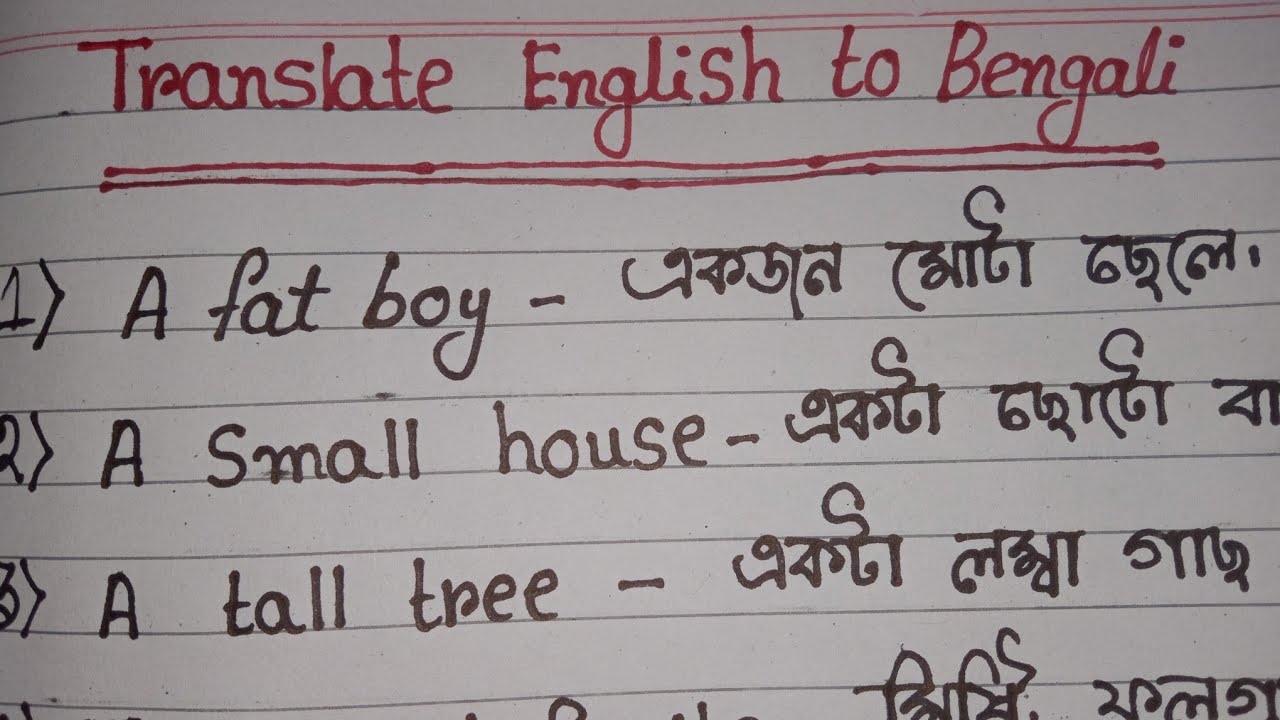 Translate English to Bengali
1) A fat boy - একজন মোটা ছেলে.
2) A Small house - একটা ছোটো বা
3) A tall tree - একটা লম্বা গাছ
মিষ্টি ফলগ